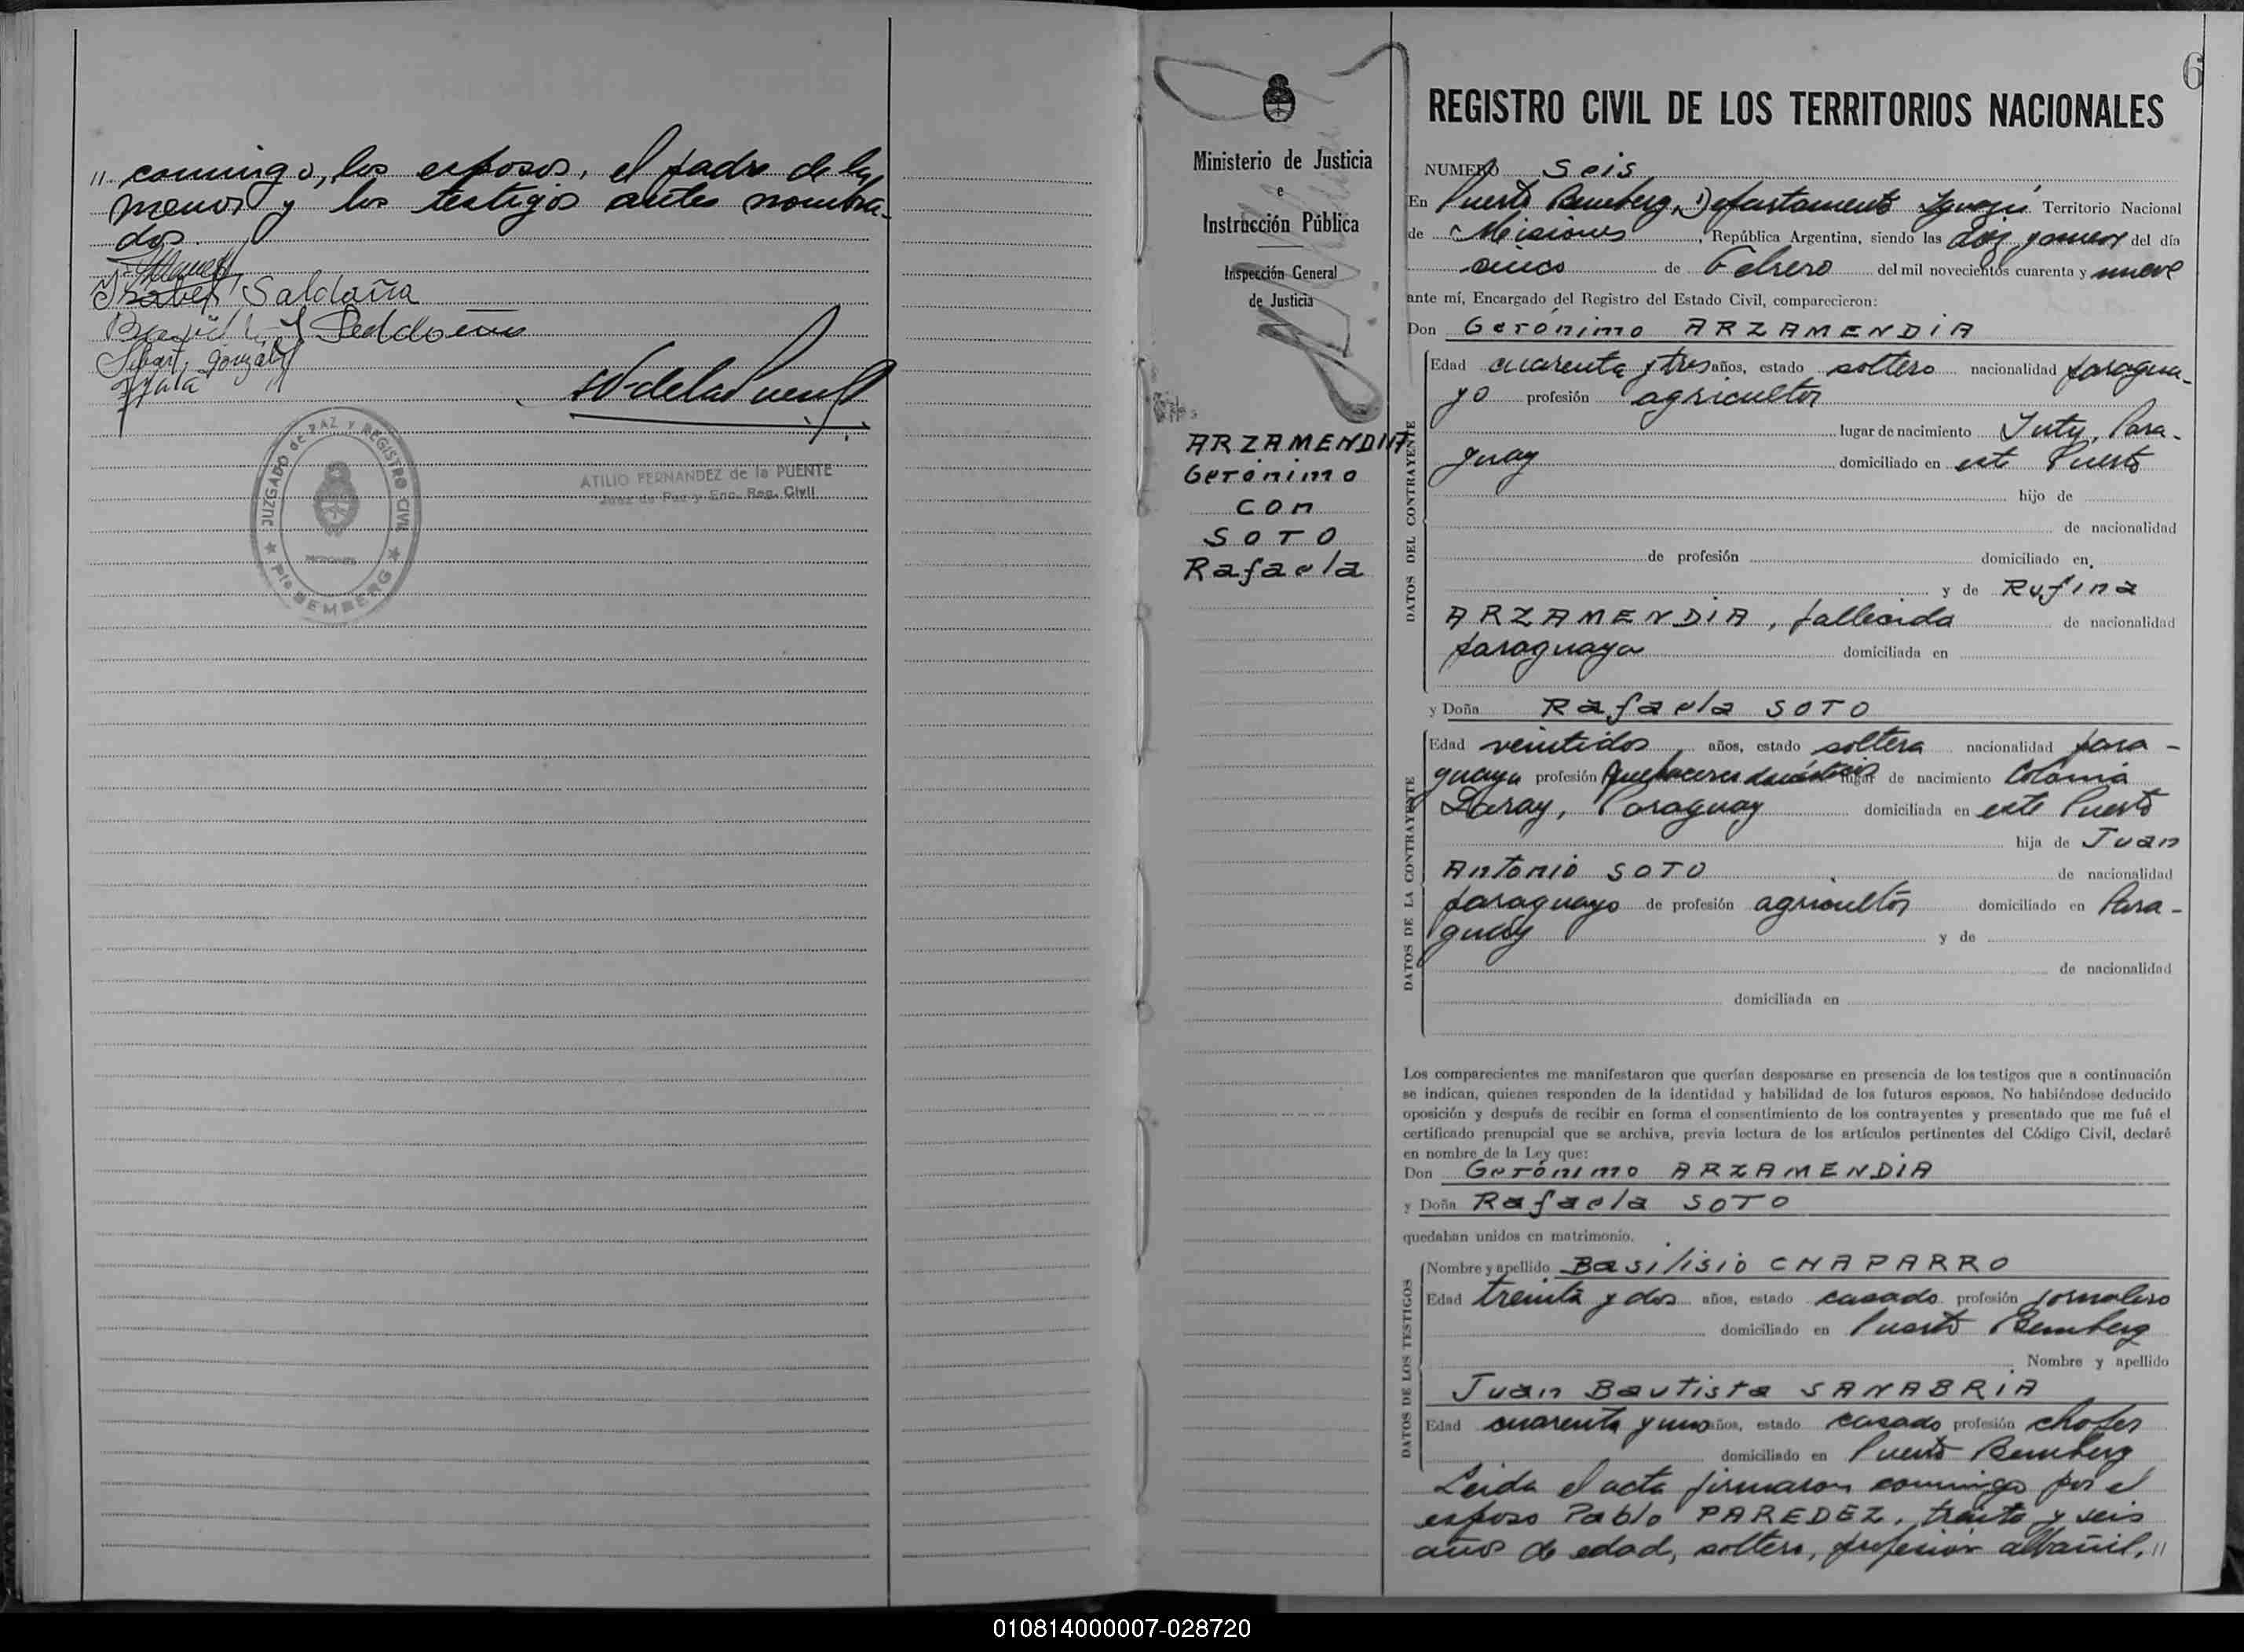 // comingo, los esposos, el padre de la
menor y los testigos antes nombra-
dos.
Isabel Saldaña
González
Ayala
JUZGADO de PAZ y REGISTRO CIVIL
★ Pto. BEMBERG ★
ATILIO FERNANDEZ de la PUENTE
Juez de Paz y Enc. Reg. Civil
Ministerio de Justicia
e
Instrucción Pública
Inspección General
de Justicia
ARZAMENDIA
Gerónimo
con
SOTO
Rafaela
6
REGISTRO CIVIL DE LOS TERRITORIOS NACIONALES
NUMERO Seis
En Puerto Bemberg, Departamento Iguazú Territorio Nacional
de Misiones, República Argentina, siendo las diez y del día
cinco de Febrero del mil novecientos cuarenta y nueve
ante mí, Encargado del Registro del Estado Civil, comparecieron:
Don Gerónimo ARZAMENDIA
DATOS DEL CONTRAYENTE
Edad cuarenta y tres años, estado soltero nacionalidad paragua-
yo profesión agricultor
lugar de nacimiento Yuty, Para-
guay domiciliado en este Puerto
hijo de
de nacionalidad
de profesión domiciliado en
y de Rufina
ARZAMENDIA, fallecida de nacionalidad
paraguaya domiciliada en
y Doña Rafaela SOTO
DATOS DE LA CONTRAYENTE
Edad veintidos años, estado soltera nacionalidad para-
guaya profesión quehaceres domésticos lugar de nacimiento Colonia
Paraguay domiciliada en este Puerto
hija de Juan
Antonio SOTO de nacionalidad
paraguayo de profesión agricultor domiciliado en Para-
guay y de
de nacionalidad
domiciliada en
Los comparecientes me manifestaron que querían desposarse en presencia de los testigos que a continuación
se indican, quienes responden de la identidad y habilidad de los futuros esposos. No habiéndose deducido
oposición y después de recibir en forma el consentimiento de los contrayentes y presentado que me fué el
certificado prenupcial que se archiva, previa lectura de los artículos pertinentes del Código Civil, declaré
en nombre de la Ley que:
Don Gerónimo ARZAMENDIA
y Doña Rafaela SOTO
quedaban unidos en matrimonio.
DATOS DE LOS TESTIGOS
Nombre y apellido Basilisio CHAPARRO
Edad treinta y dos años, estado casado profesión jornalero
domiciliado en Puerto Bemberg
Nombre y apellido
Juan Bautista SANABRIA
Edad cuarenta y uno años, estado casado profesión chofer
domiciliado en Puerto Bemberg
Leida el acta firmaron comingo por el
esposo Pablo PAREDEZ, treinta y seis
años de edad, soltero, profesion albañil, //
010814000007-028720